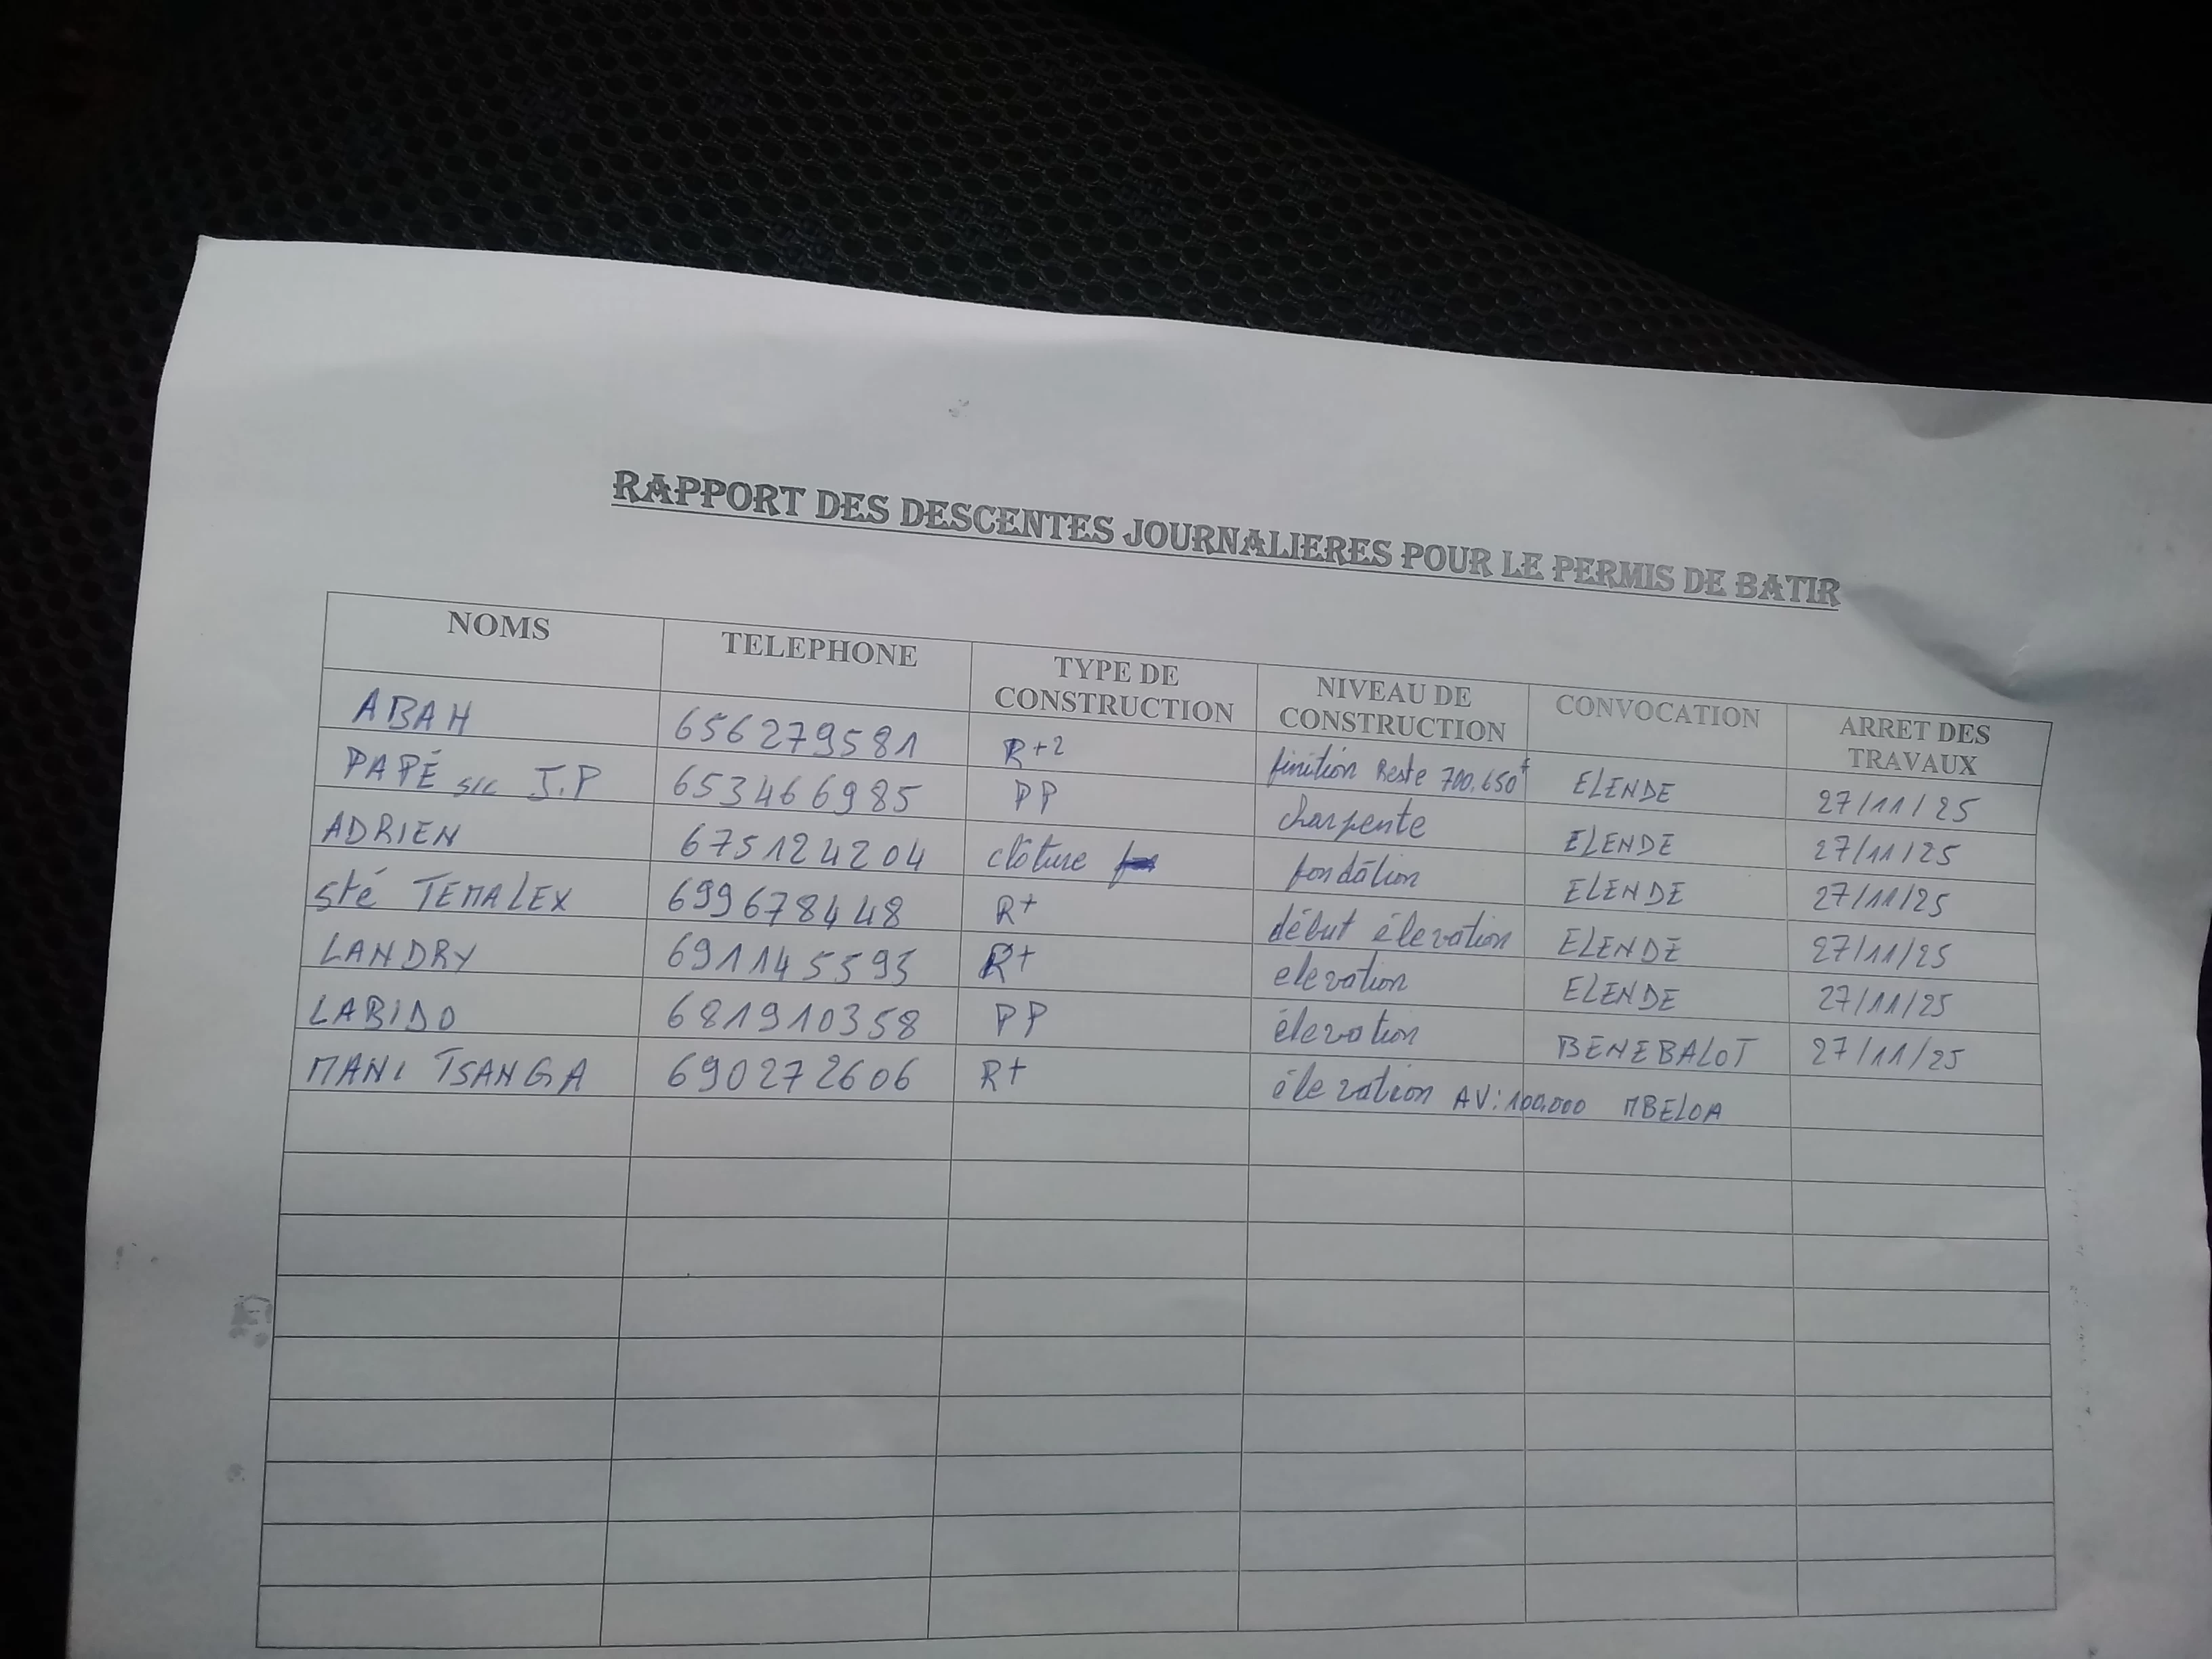 RAPPORT DES DESCENTES JOURNALIERES POUR LE PERMIS DE BATIR
NOMS TELEPHONE TYPE DE CONSTRUCTION NIVEAU DE CONSTRUCTION CONVOCATION ARRET DES TRAVAUX
ABAH 656279581 R+2 finition Reste 700.650f ELENDE 27/11/25
PAPÉ s/c J.P 653466985 PP charpente ELENDE 27/11/25
ADRIEN 675124204 clôture fondâtion ELENDE 27/11/25
Sté TEMALEX 699678448 R+ début élevation ELENDE 27/11/25
LANDRY 691145593 R+ elevation ELENDE 27/11/25
LABIDO 681910358 PP élevation BENEBALOT 27/11/25
MANI TSANGA 690272606 R+ élevation AV:100.000 MBELOA